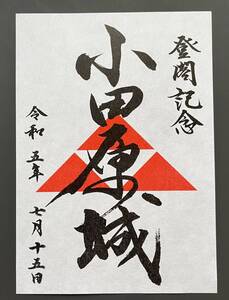 登閣記念
小田原城
令和五年七月十五日